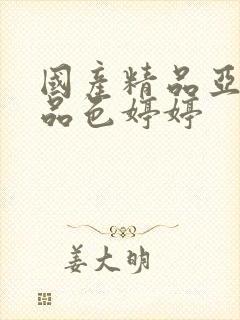 國產精品亞
品色婷婷
姜大明